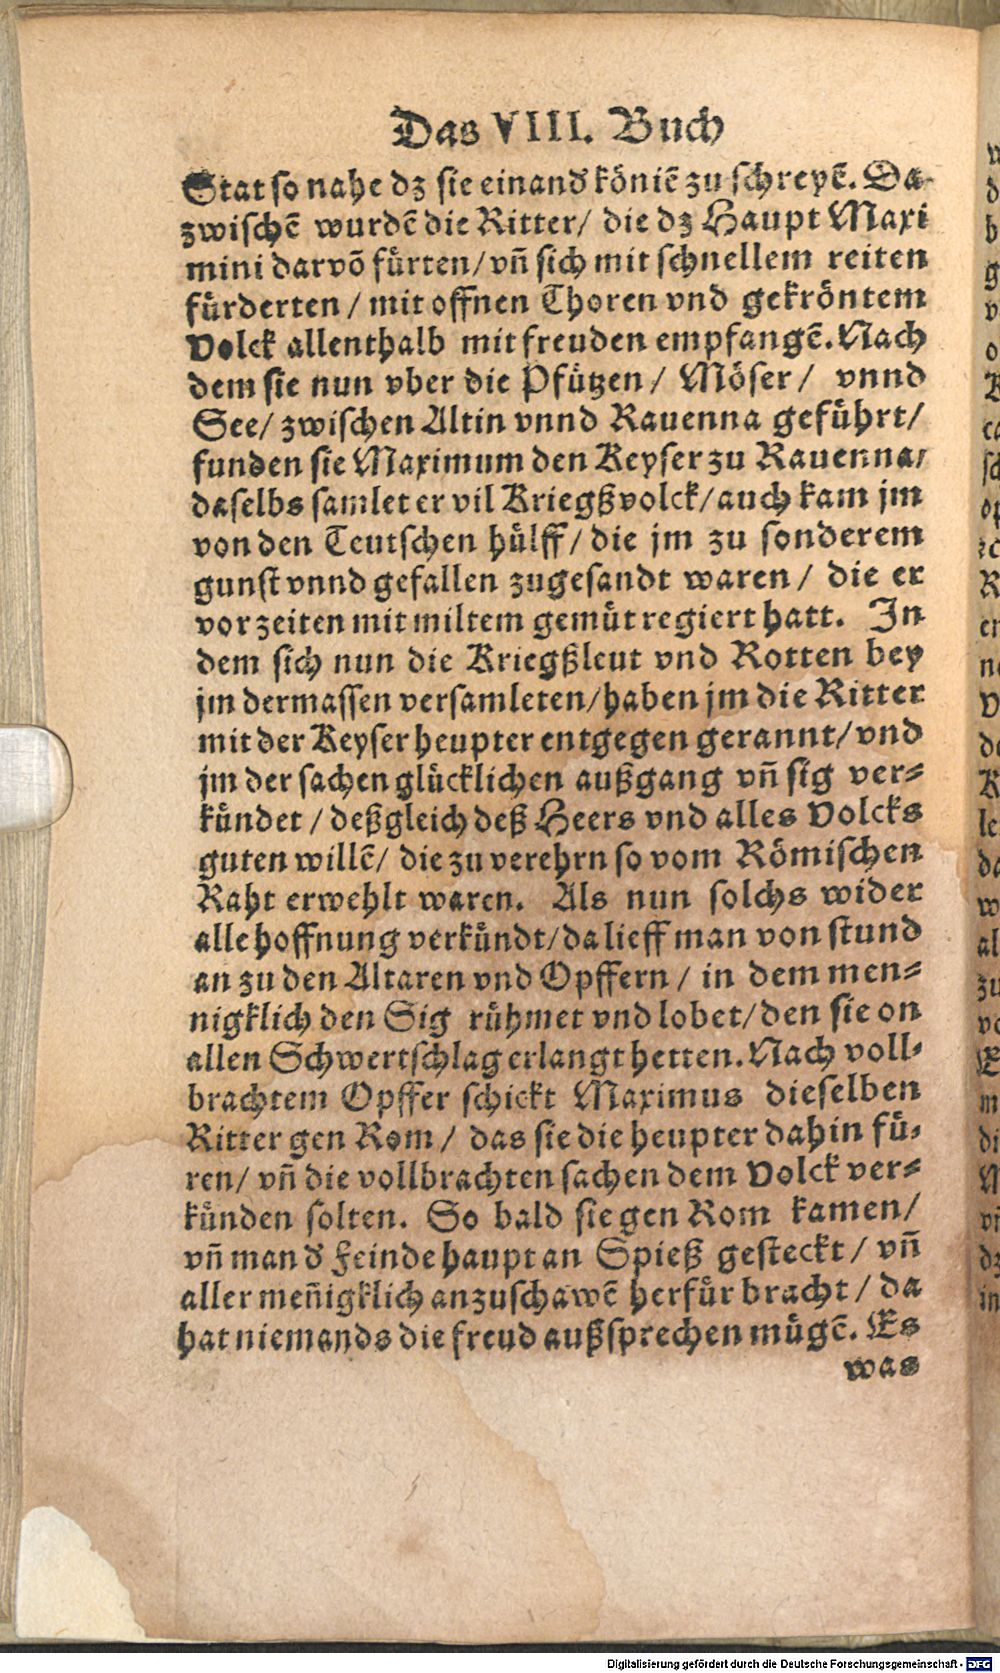 Das VIII. Buch
Stat so nahe dz sie einand' köniē zu schreyē. Da-
zwischē wurdē die Ritter/ die dz Haupt Maxi
mini darvõ fürten/ vñ sich mit schnellem reiten
fürderten / mit offnen Thoren vnd gekröntem
Volck allenthalb mit freuden empfangē. Nach
dem sie nun vber die Pfützen / Möser / vnnd
See/ zwischen Altin vnnd Rauenna geführt/
funden sie Maximum den Keyser zu Rauenna/
daselbs samlet er vil Kriegßvolck/ auch kam jm
von den Teutschen hülff / die jm zu sonderem
gunst vnnd gefallen zugesandt waren / die er
vor zeiten mit miltem gemüt regiert hatt. In
dem sich nun die Kriegßleut vnd Rotten bey
jm dermassen versamleten/ haben jm die Ritter
mit der Keyser heupter entgegen gerannt/ vnd
jm der sachen glücklichen außgang vñ sig ver-
kündet / deßgleich deß Heers vnd alles Volcks
guten willē/ die zu verehrn so vom Römischen
Raht erwehlt waren. Als nun solchs wider
alle hoffnung verkündt/ da lieff man von stund
an zu den Altaren vnd Opffern / in dem men-
nigklich den Sig rühmet vnd lobet/ den sie on
allen Schwertschlag erlangt hetten. Nach voll-
brachtem Opffer schickt Maximus dieselben
Ritter gen Rom / das sie die heupter dahin fü-
ren/ vñ die vollbrachten sachen dem Volck ver-
künden solten. So bald sie gen Rom kamen/
vñ man d' Feinde haupt an Spieß gesteckt / vñ
aller meñigklich anzuschawē herfür bracht / da
hat niemands die freud außsprechen mügē. Es
was
Digitalisierung gefördert durch die Deutsche Forschungsgemeinschaft - DFG